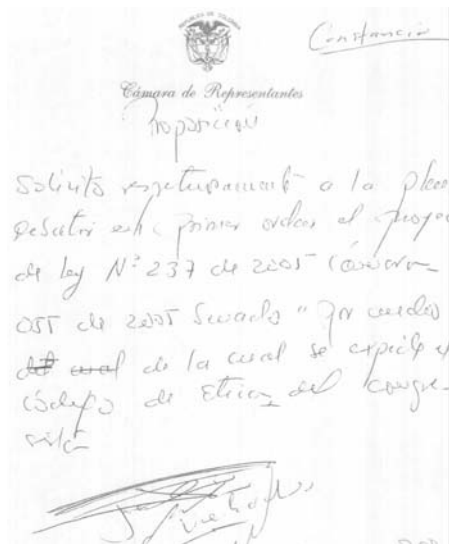 REPUBLICA DE COLOMBIA
Constancia
Cámara de Representantes
Proposición
Solicito respetuosamente a la
en primer orden el
de ley Nº 237 de 2005 Cámara
de 2005 Senado "Por medio
del cual de la cual se expide el
código de Etica del congre
sista